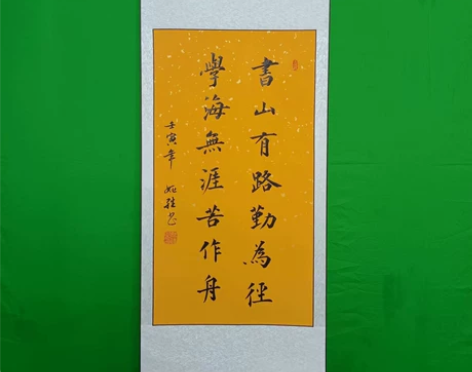 書山有路勤為徑
學海無涯苦作舟
壬寅年